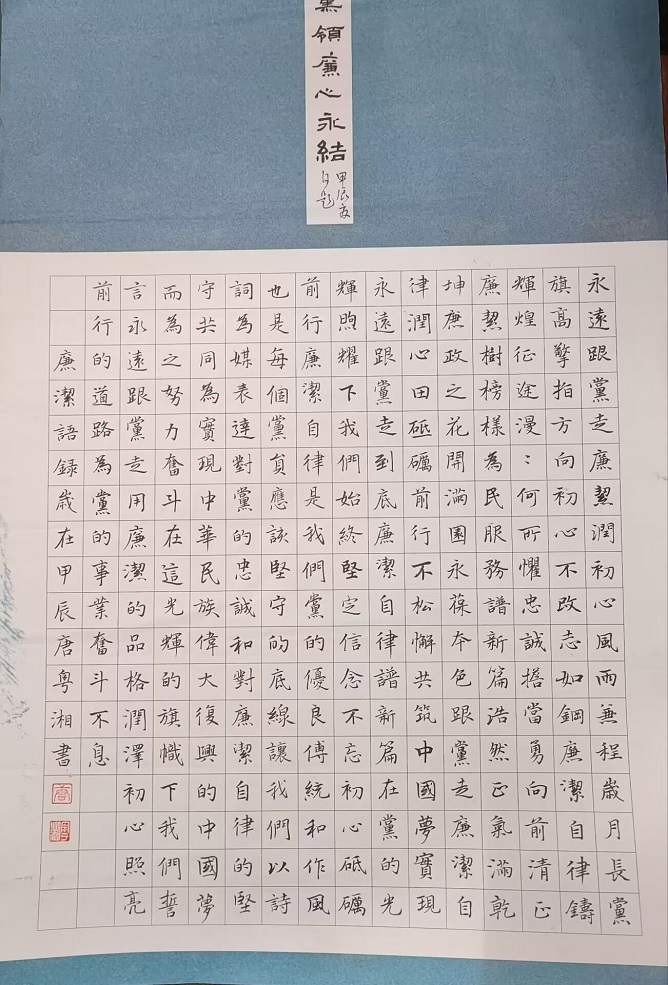 領廉心永結
甲辰夏
題
永遠跟黨走廉潔潤初心風雨兼程歲月長黨
旗高擎指方向初心不改志如鋼廉潔自律鑄
輝煌征途漫：何所懼忠誠擔當勇向前清正
廉潔樹榜樣為民服務譜新篇浩然正氣滿乾
坤廉政之花開滿園永葆本色跟黨走廉潔自
律潤心田砥礪前行不松懈共筑中國夢實現
永遠跟黨走到底廉潔自律譜新篇在黨的光
輝照耀下我們始終堅定信念不忘初心砥礪
前行廉潔自律是我們黨的優良傳統和作風
也是每個黨員應該堅守的底線讓我們以詩
詞為媒表達對黨的忠誠和對廉潔自律的堅
守共同為實現中華民族偉大復興的中國夢
而為之努力奮斗在這光輝的旗幟下我們誓
言永遠跟黨走用廉潔的品格潤澤初心照亮
前行的道路為黨的事業奮斗不息
廉潔語録歲在甲辰唐粵湘書